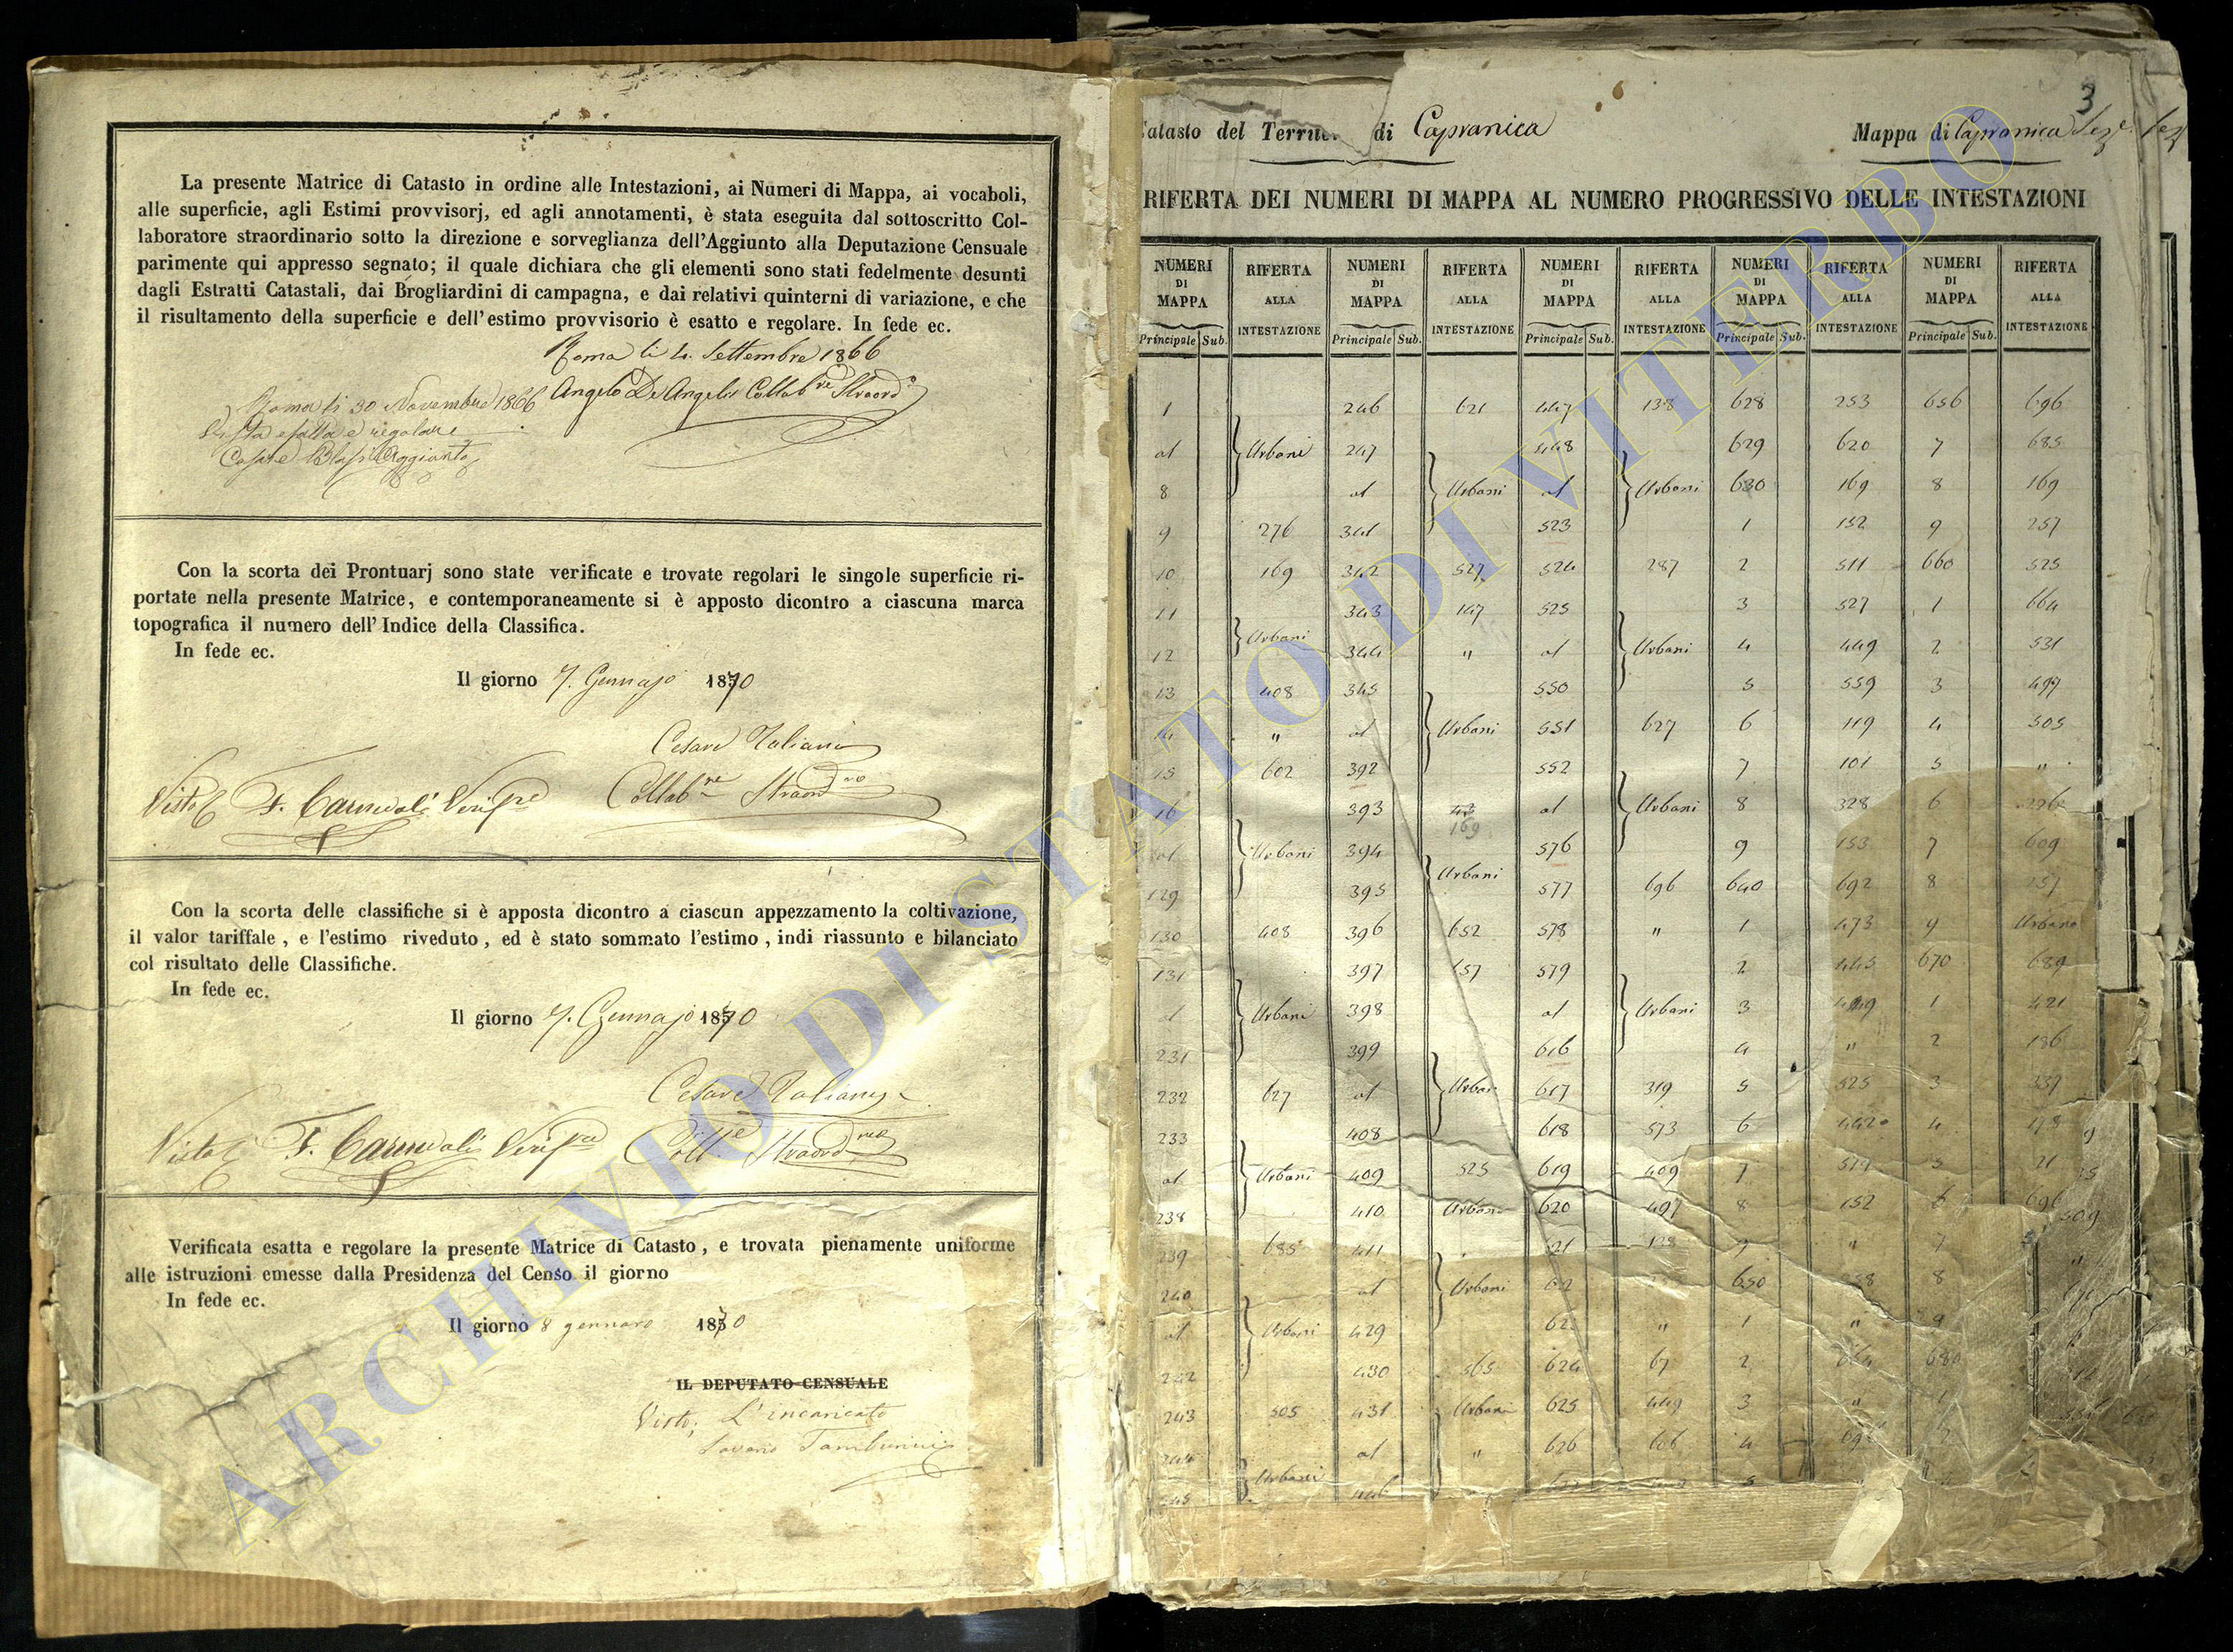 La presente Matrice di Catasto in ordine alle Intestazioni, ai Numeri di Mappa, ai vocaboli,
alle superficie, agli Estimi provvisorj, ed agli annotamenti, è stata eseguita dal sottoscritto Col-
laboratore straordinario sotto la direzione e sorveglianza dell'Aggiunto alla Deputazione Censuale
parimente qui appresso segnato; il quale dichiara che gli elementi sono stati fedelmente desunti
dagli Estratti Catastali, dai Brogliardini di campagna, e dai relativi quinterni di variazione, e che
il risultamento della superficie e dell'estimo provvisorio è esatto e regolare. In fede ec.
Roma li 4. Settembre 1866
Angelo De Angelis Collab.re Straord.o
Roma li 30 Novembre 1866
Vista esatta e regolare
Cesare Blasi Aggiunto
Con la scorta dei Prontuarj sono state verificate e trovate regolari le singole superficie ri-
portate nella presente Matrice, e contemporaneamente si è apposto dicontro a ciascuna marca
topografica il numero dell'Indice della Classifica.
In fede ec.
Il giorno 7. Gennajo 1870
Cesare
Collab.re Straord.rio
Visto F.
Con la scorta delle classifiche si è apposta dicontro a ciascun appezzamento la coltivazione,
il valor tariffale, e l'estimo riveduto, ed è stato sommato l'estimo, indi riassunto e bilanciato
col risultato delle Classifiche.
In fede ec.
Il giorno 7. Gennajo 1870
Cesare
Straord.rio
Visto F.
Verificata esatta e regolare la presente Matrice di Catasto, e trovata pienamente uniforme
alle istruzioni emesse dalla Presidenza del Censo il giorno
In fede ec.
Il giorno 8 gennaro 1870
IL DEPUTATO CENSUALE
Visto, L'incaricato
Tamburini
3
Catasto del di Capranica Mappa di Capranica
RIFERTA DEI NUMERI DI MAPPA AL NUMERO PROGRESSIVO DELLE INTESTAZIONI
NUMERI DI MAPPA RIFERTA ALLA INTESTAZIONE NUMERI DI MAPPA RIFERTA ALLA INTESTAZIONE NUMERI DI MAPPA RIFERTA ALLA INTESTAZIONE NUMERI DI MAPPA RIFERTA ALLA INTESTAZIONE NUMERI DI MAPPA RIFERTA ALLA INTESTAZIONE
Principale Sub. Principale Sub. Principale Sub. Principale Sub. Principale Sub.
1 246 621 447 138 628 253 656 696
al Urbani 247 448 629 620 7 685
8 al Urbani al Urbani 630 169 8 169
9 276 341 523 1 152 9 257
10 169 342 527 524 287 2 511 660 525
11 343 147 525 3 527 1 664
12 Urbani 344 " al Urbani 4 449 2 531
13 408 345 550 5 559 3 497
14 " al Urbani 551 627 6 119 4 505
15 602 392 552 7 101 5 "
16 393 169 al Urbani 8 328 6
al Urbani 394 576 9 153 7 609
129 395 Urbani 577 696 640 692 8 257
130 408 396 652 578 " 1 473 9 Urbano
131 397 157 579 2 445 670 689
al Urbani 398 al Urbani 3 1 421
231 399 616 4 " 2 136
232 627 al Urbani 617 319 5 525 3
233 408 618 573 6 442 4
al Urbani 409 525 619 409 7 5 21
238 410 Urbani 620 497 8 152 6 696
239 685 411 9 " 7
240 al Urbani 650 8
al Urbani 429 " 1 " 9
242 430 565 624 67 2 680
243 505 431 Urbani 625 449 3 "
244 al " 626 606 4
245 Urbani 446 5
ARCHIVIO DI STATO DI VITERBO